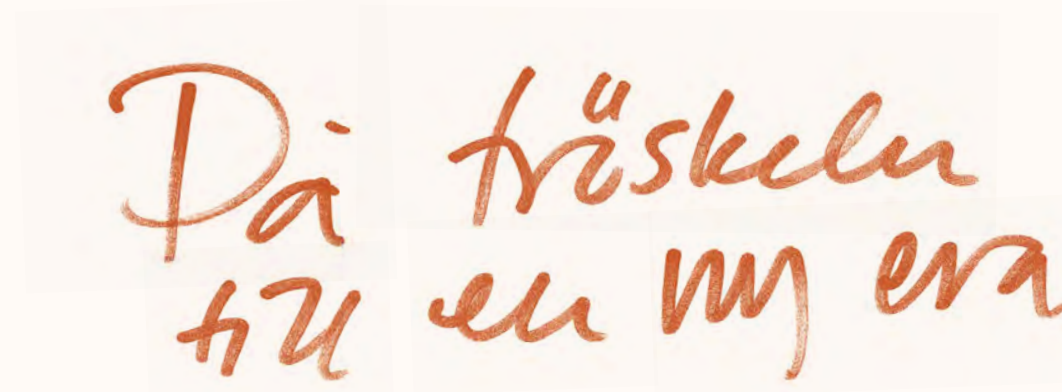 På tröskeln
till en ny era